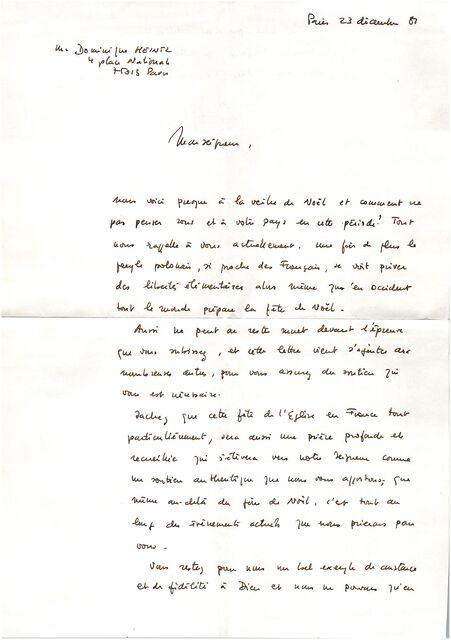 Paris 23 décembre 81
M. Dominique HEINTZ
4 place Nationale
75013 Paris
Monseigneur,
nous voici presque à la veille de Noël et comment ne
pas penser à vous et à votre pays en cette période! Tout
nous rappelle à vous actuellement. Une fois de plus le
peuple polonais, si proche des Français, se voit priver
des libertés élémentaires alors même qu'en occident
tout le monde prépare la fête de Noël.
Aussi ne peut on rester muet devant l'épreuve
que vous subissez, et cette lettre vient s'ajouter aux
nombreuses autres, pour vous assurer du soutien qui
vous est nécessaire.
Sachez que cette fête de l'Eglise en France tout
particulièrement, sera aussi une prière profonde et
recueillie qui s'élèvera vers notre Seigneur comme
un soutien authentique que nous vous apportons; que
même au-delà du fête de Noël, c'est tout au
long des évènements actuels que nous prierons pour
vous.
Vous restez pour nous un bel exemple de constance
et de fidélité à Dieu et nous ne pouvons qu'en